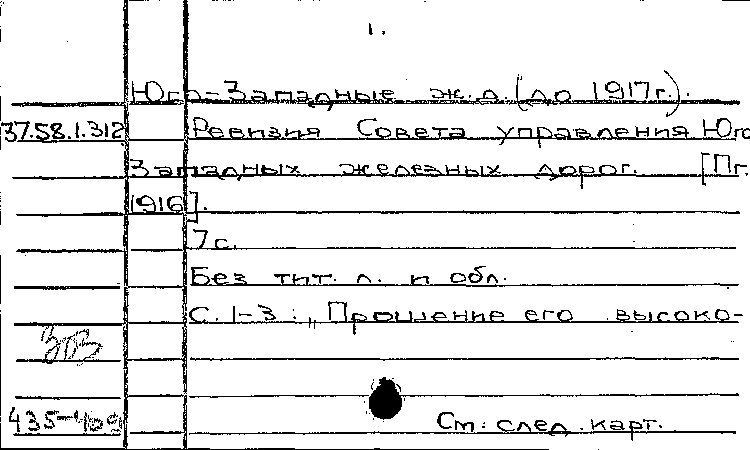 1.
Юго-Западные ж.д. (до 1917г.).
37.58.1.312 Ревизия Совета управления Юго
Западных железных дорог. [Пг.
1916].
7с.
Без тит. л. и обл.
С. 1-3: „Прошение его высоко-
435-409 См. след. карт.